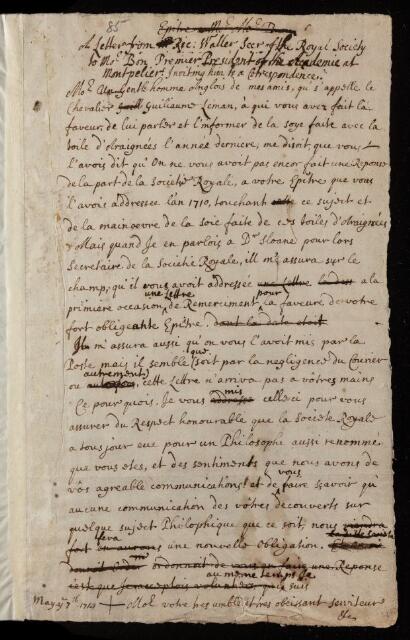 85
Epitre a Mr. Mr. B
a Letter from Mr Ric: Waller Secr of the Royal Society
to Mr. Bon Premier President of the Academie at
Montpelier Inviting him to a Correspondence.
Monr. Un Gentilhomme Anglois de mes amis, qu s'appelle le
Chevalier Guiliaume Leman, à qui vous aves fait la
faveur, de lui parler et l'informer de la soye faite avec la
toile d'olraignées l'année derniere, me disoit, que vous
l'avois dit qu'On ne vous avoit pas encor fait une Reponse
de la part de la Societé Royale, a votre Epître que vous
l'avois addressée l'an 1710, touchant cette ce sujet et
de la main oevre de la soie faite de ces toiles d'otraignées
Mais quand Je en parlois a Dr. Sloane pour lors
Secretaire de la Societie Royale, ill m'assura sur le
champ, qu'il vous avoit addressée une Lettre a la
une Lettre pour
primiere occasion, de Remerciment, la faveur de votre
fort obligeante Epître. dont la date etoit
Il m'assura aussi qu'on vous l'avoit mis par la
Poste mais il semble que soit par la negligence du Courier
autrement
ou cette Lettre n'arriva pas a vôtres mains
mis
Ce pour quois. Je vous addresse celleci pour vous
assurer du Respect honourable que la Societe Royale
a tous jour eue pour un Philosophe aussi renomme
que vous etes, et des sentiments que nous avons de
vous
vôs agreable communications! et de faire sçavoir qu
aucune communication des vôtres decouverts sur
quelque sujet Philosophique que ce soit, nous
fera
fort une nouvelle obligation.
ordonnoit de vous en faire une Reponse
au même temps Je
que suis
May ye 7th. 1714 Monr. votre tres umble et tres obeisant serviteur
&c